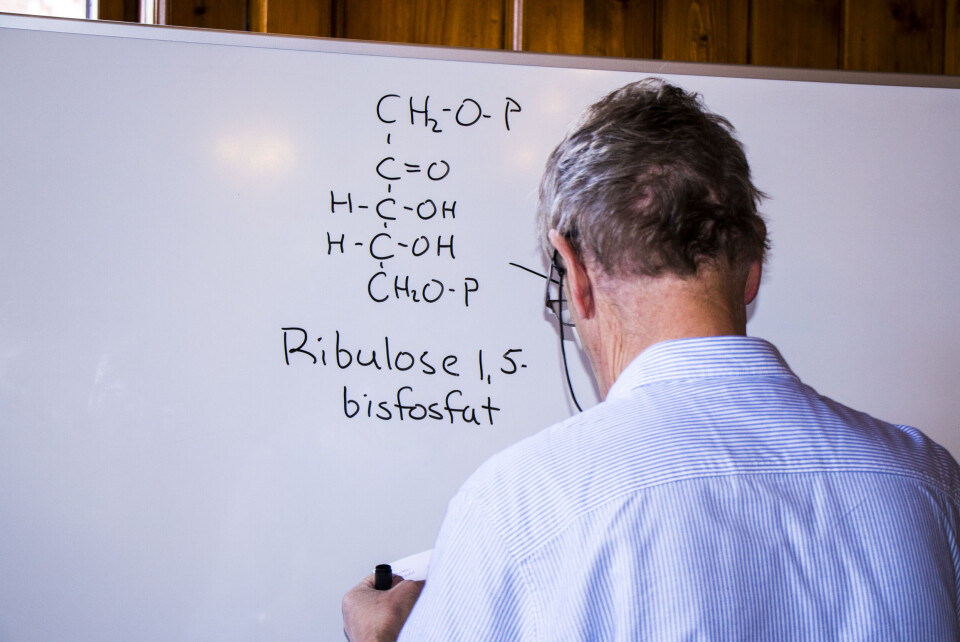 CH₂-O-P
C=O
H-C-OH
H-C-OH
CH₂O-P
Ribulose 1,5-
bisfosfat